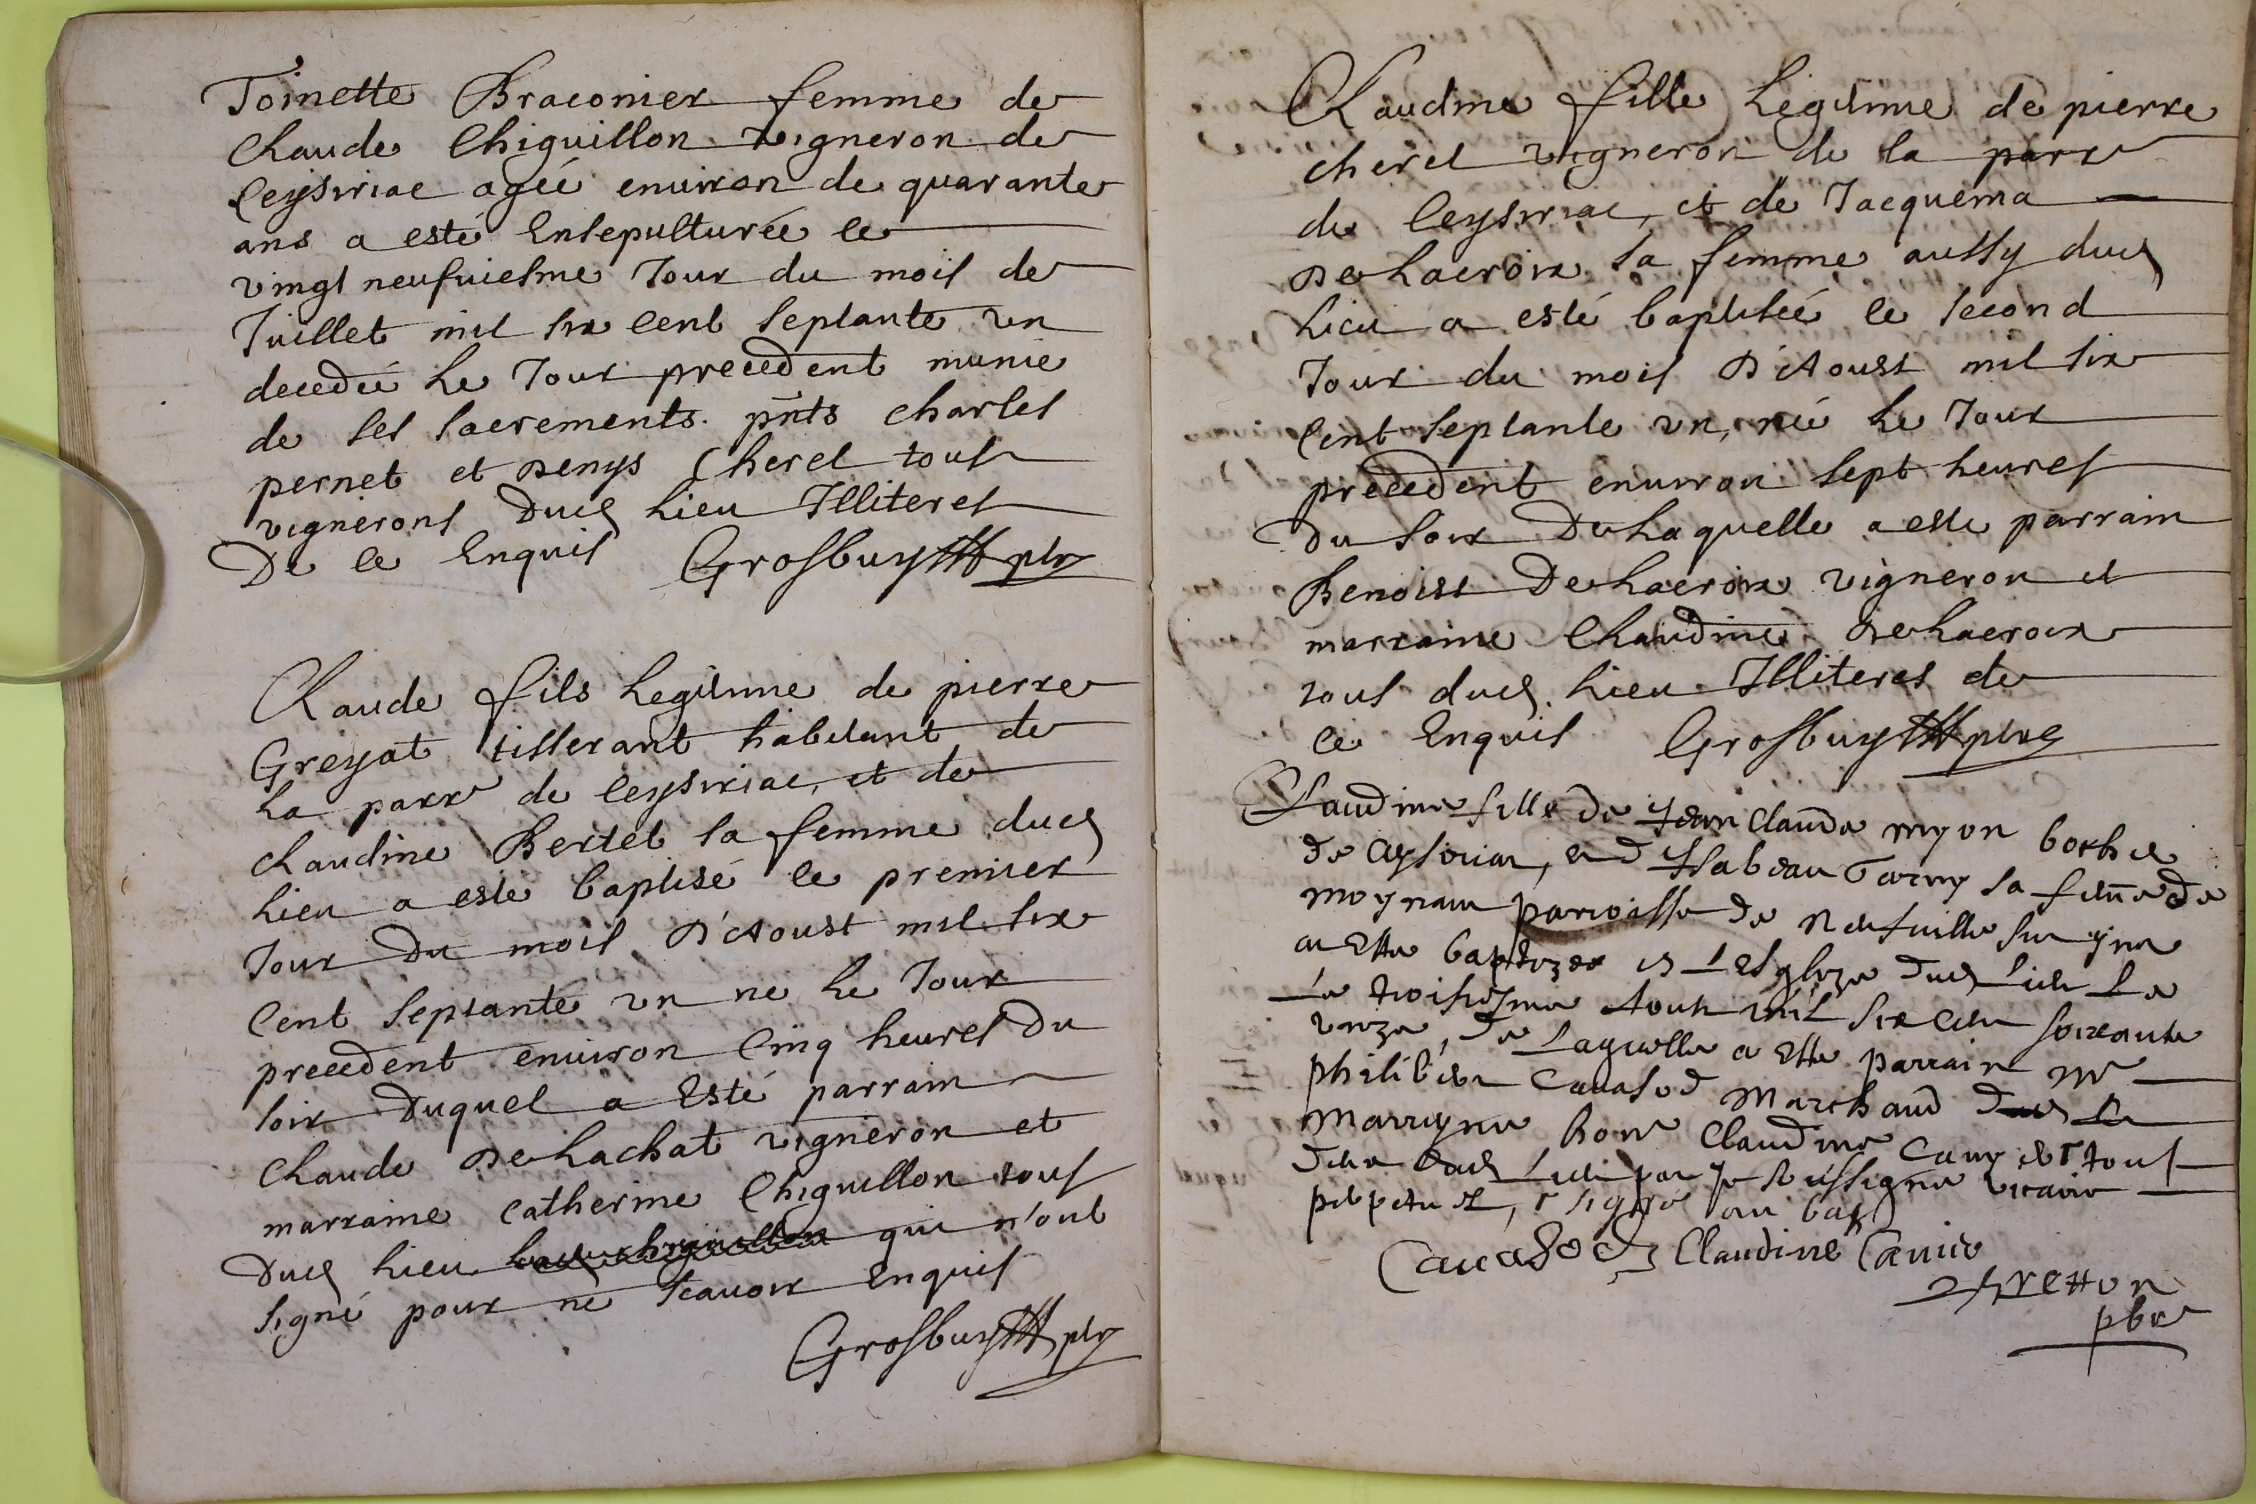 Toinette Braconier femme de
Claude Chiguillon vigneron de
Ceysiriac agée environ de quarante
ans a esté Ensepulturée le
vingt neufuiesme Jour du mois de
Juillet mil six cent septante un
decedée le Jour precedent munie
de ses sacrements. pnts charles
pernet et Denys Cherel tous
vignerons dud lieu Illiteres
De ce Enquis Grosbuy ptr
Claude fils legitime de pierre
Greyat tisserant habitant de
la parr de Ceysiriac, et de
claudine Bertet sa femme dud
lieu a esté baptisé le premier
Jour Du mois D'Aoust mil six
Cent septante un ne le Jour
precedent enuiron Cinq heures Du
soir Duquel a Esté parrain
Claude De lachat vigneron et
marraine Catherine Chiguillon tous
Dud lieu qui n'ont
signé pour ne scauoir Enquis
Grosbuy ptr
Claudine fille legitime de pierre
cherel vigneron de la parr
de Ceysiriac, et de Jacquema
De lacroix sa femme aussy dud
lieu a esté baptisée le second
Jour du mois D'Aoust mil six
Cent septante un, née le Jour
precedent enuiron sept heures
Du soir De laquelle a esté parrain
Benoist De lacroix vigneron et
marraine Claudine De lacroix
tous dud lieu Illiteres de
ce Enquis Grosbuy ptre
Claudine fille de Jean Claude myon
de et d ysabeau sa femme de
moynam parroisse de Neufuille sur
a Este baptizee en Lesglize dud Lieu Le
Le troisiesme Aoust mil six cent soixante
unze, de Laquelle a Esté parrain Mr
philibert Cauasod Marchand
Marrayne hone Claudine tous
dud Lieu par Je soussigne vicaire
perpetuel, signé au bas
Cauasod Claudine Camier
pbr